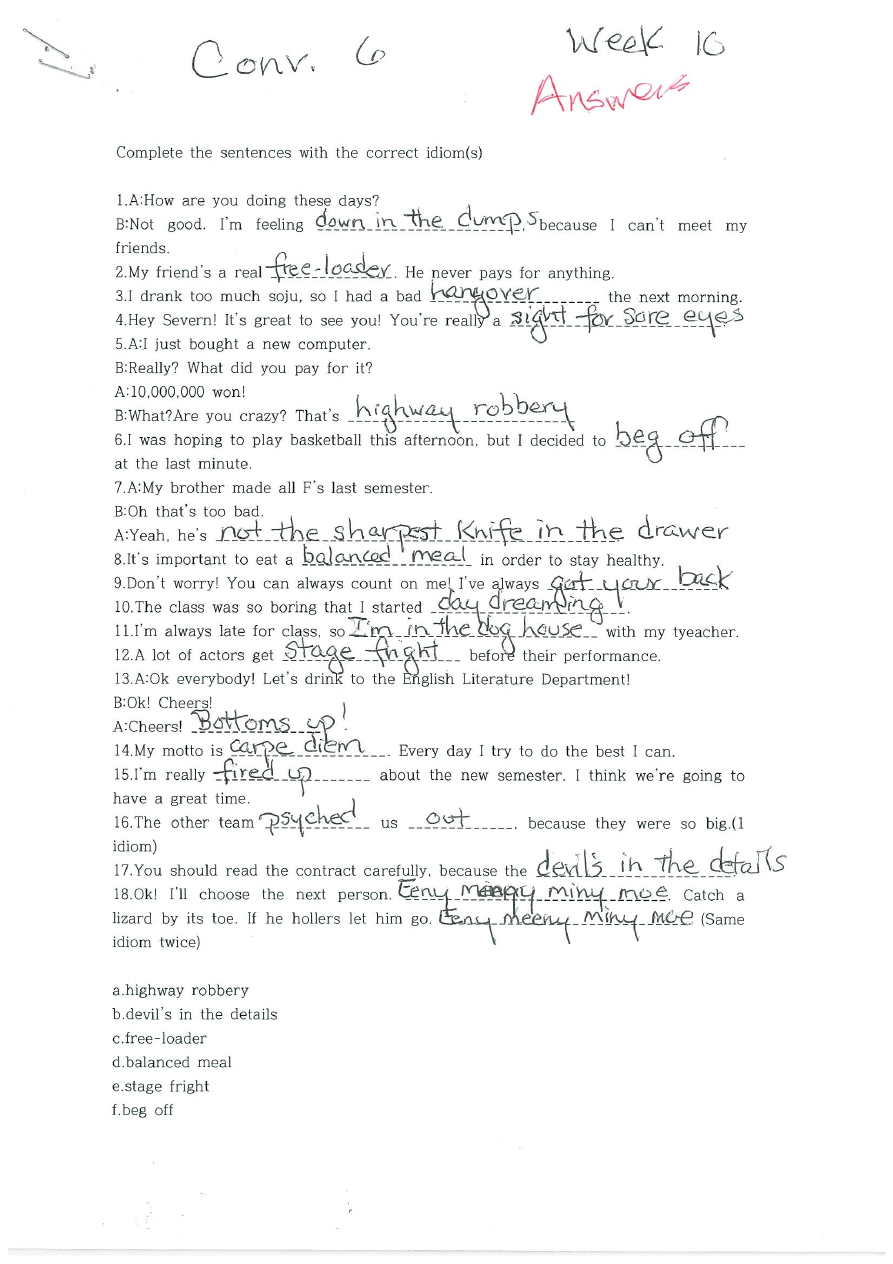 Conv. 6 Week 16
Answers
Complete the sentences with the correct idiom(s)
1.A:How are you doing these days?
B:Not good. I'm feeling down in the dumps, because I can't meet my
friends.
2.My friend's a real free-loader. He never pays for anything.
3.I drank too much soju, so I had a bad hangover the next morning.
4.Hey Severn! It's great to see you! You're really a sight for sore eyes
5.A:I just bought a new computer.
B:Really? What did you pay for it?
A:10,000,000 won!
B:What?Are you crazy? That's highway robbery
6.I was hoping to play basketball this afternoon, but I decided to beg off
at the last minute.
7.A:My brother made all F's last semester.
B:Oh that's too bad.
A:Yeah, he's not the sharpest knife in the drawer
8.It's important to eat a balanced meal in order to stay healthy.
9.Don't worry! You can always count on me! I've always got your back
10.The class was so boring that I started day dreaming.
11.I'm always late for class, so I'm in the dog house with my tyeacher.
12.A lot of actors get stage fright before their performance.
13.A:Ok everybody! Let's drink to the English Literature Department!
B:Ok! Cheers!
A:Cheers! Bottoms up!
14.My motto is carpe diem. Every day I try to do the best I can.
15.I'm really fired up about the new semester. I think we're going to
have a great time.
16.The other team psyched us out, because they were so big.(1
idiom)
17.You should read the contract carefully, because the devil's in the details
18.Ok! I'll choose the next person. Eeny meeny miny moe. Catch a
lizard by its toe. If he hollers let him go. Eeny meeny miny moe (Same
idiom twice)
a.highway robbery
b.devil's in the details
c.free-loader
d.balanced meal
e.stage fright
f.beg off